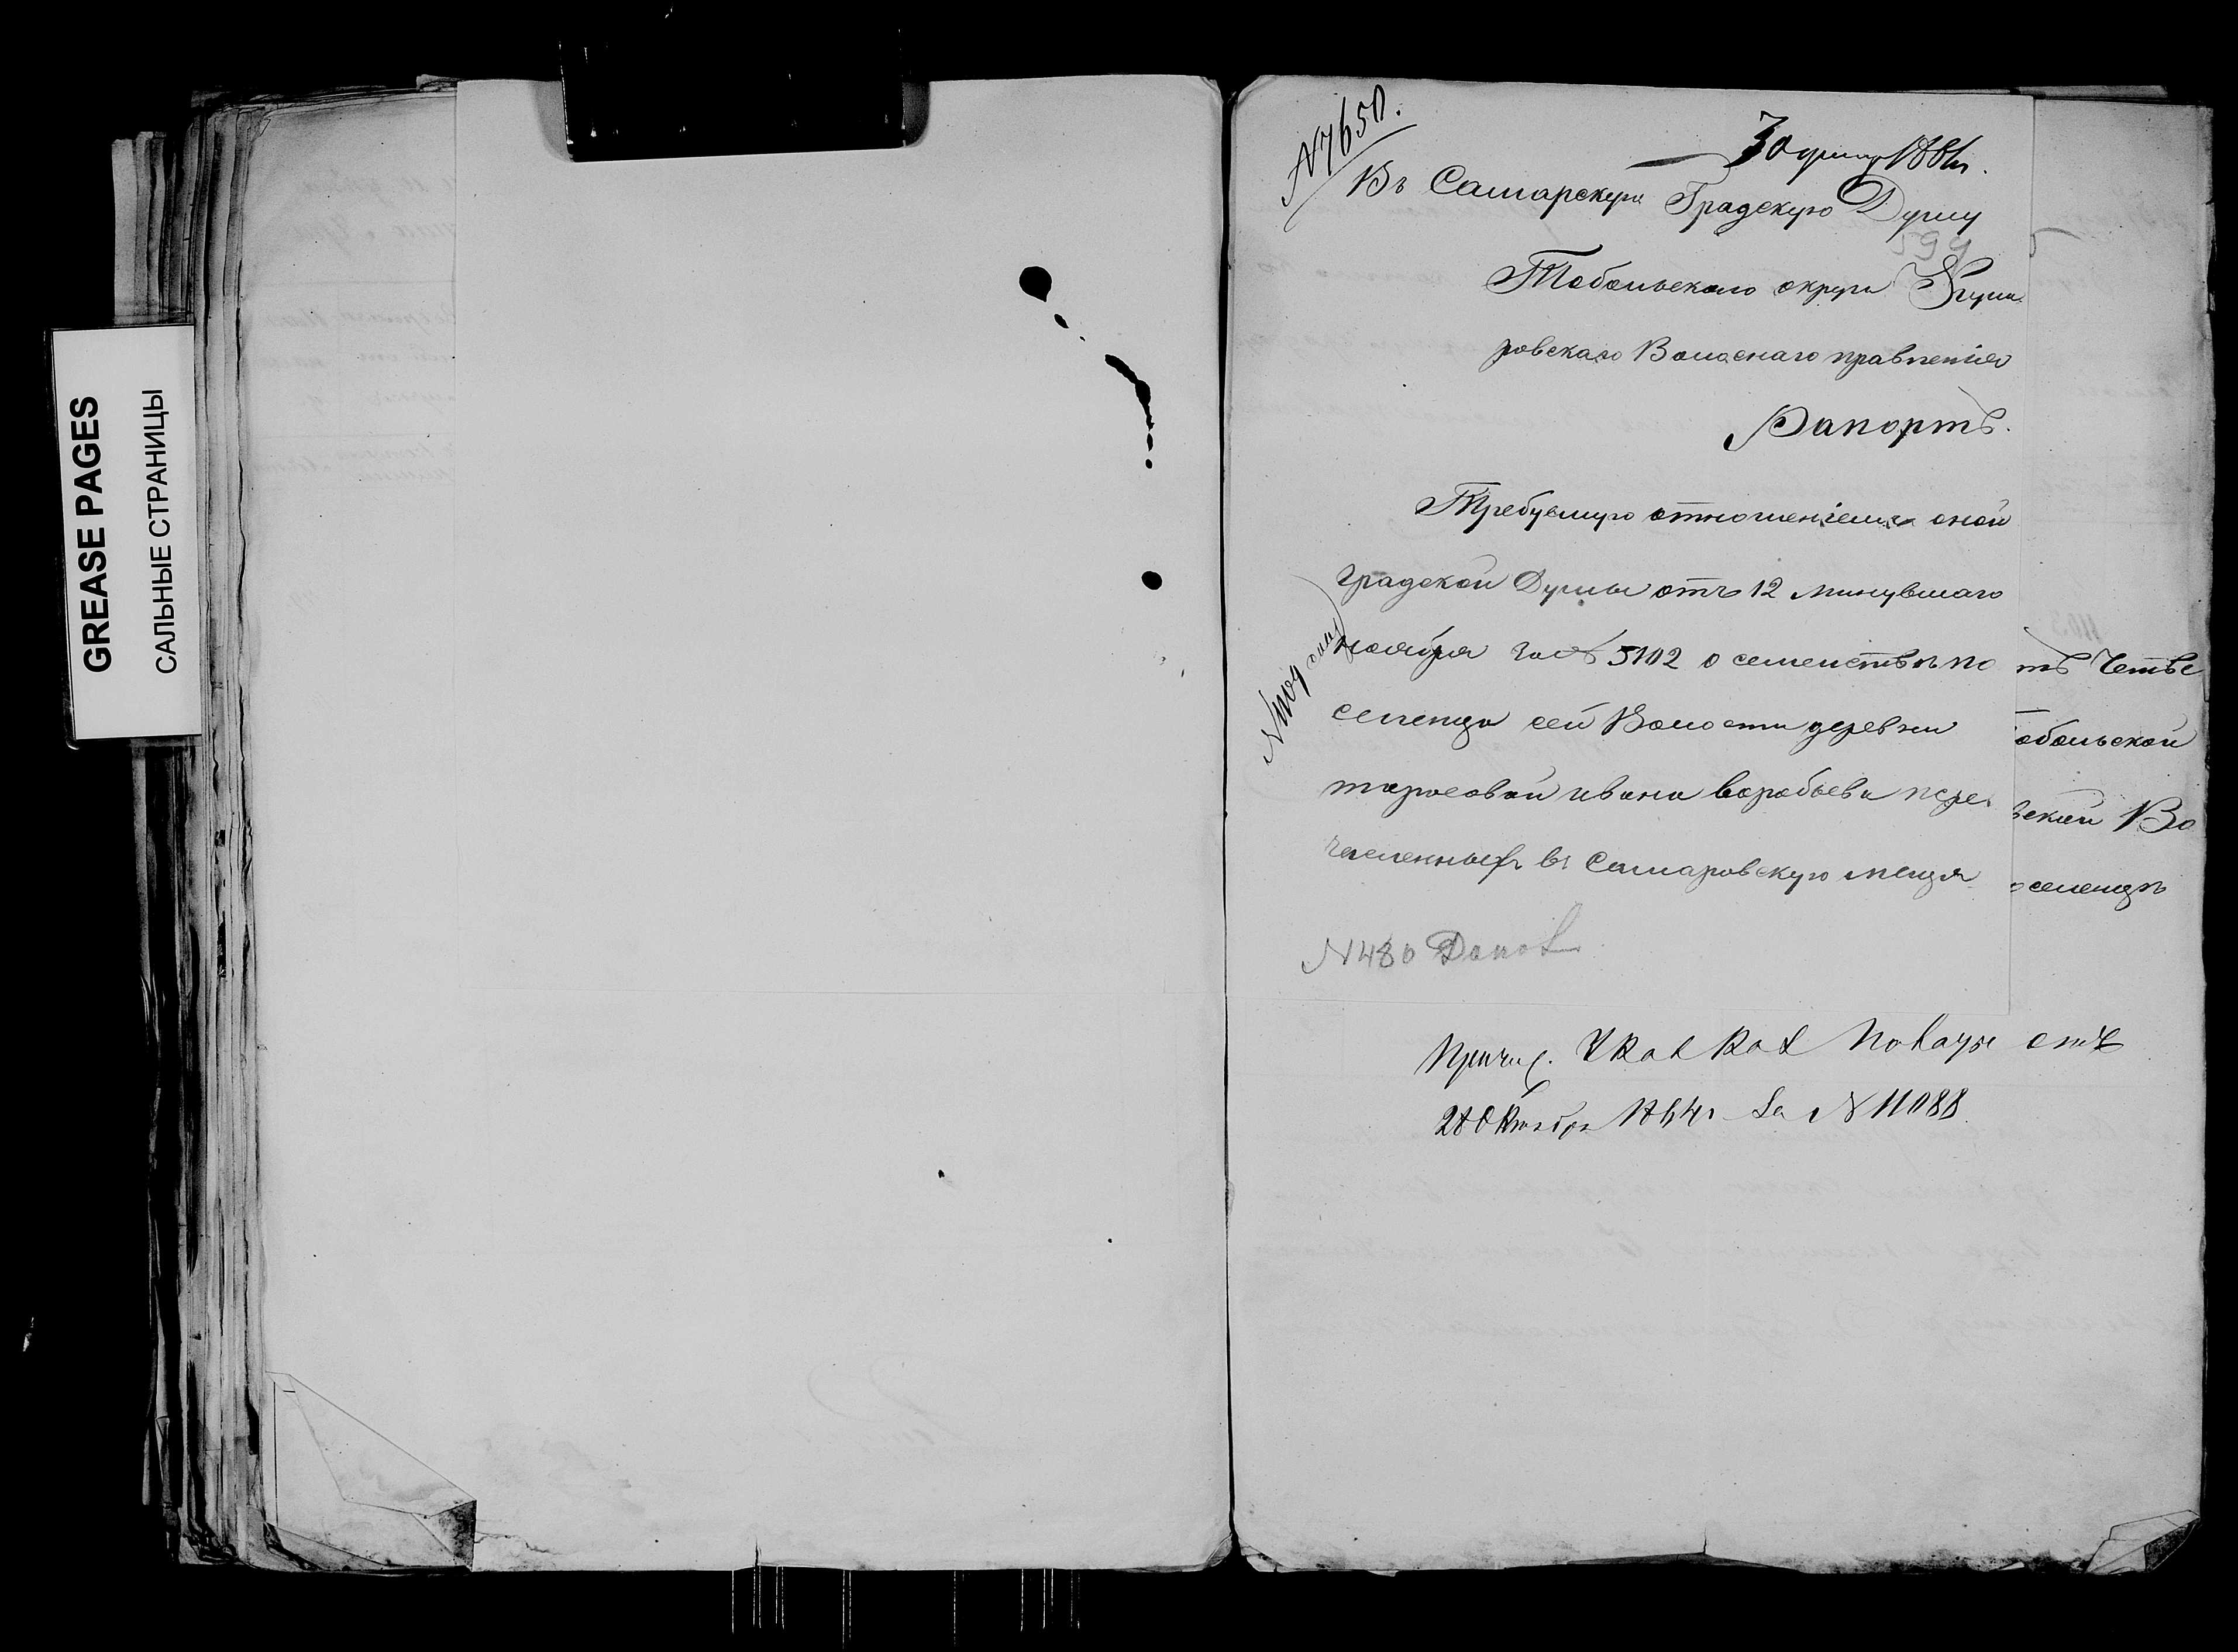 GREASE PAGES
САЛЬНЫЕ СТРАНИЦЫ
N 7650.
Въ Самарскую Градскую Думу
599
Тобольскаго округа
ровскаго Волоснаго правленія
Рапортъ.
Требуемую отношеніемъ оной
градской Думы отъ 12 минувшаго
ноября за № 5102 о семействѣ по
селенца сей Волости деревни
ивана воробьева пере
численныхъ въ Самаровскую меща
N 480
тъ
обольской
вской Во
оселенцъ
Причис. Указ Каз Палаты отъ
28 Октября 1864 г За N 11088.